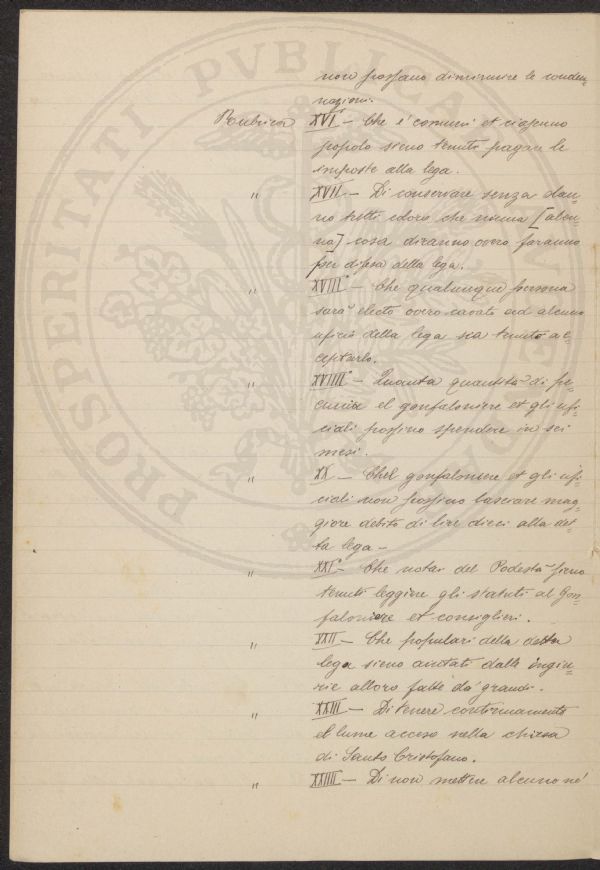 non possano diminuire le conden=
nazioni.
Rubrica XVI° — Che i comuni et ciascuno
popolo sieno tenuti pagare le
imposte alla lega.
" XVII — Di conservare senza dan=
no tutti coloro che niuna [alcu=
na] cosa diranno overo faranno
per difesa della lega.
" XVIII° — Che qualunque persona
sarà electo overo cavato ad alcuno
uficio della lega sia tenuto ac=
ceptarlo.
" XVIIII° — Quanta quantità di pe=
cunia el gonfaloniere et gli ufi=
ciali possino spendere in sei
mesi.
" XX — Chel gonfaloniere et gli ufi=
ciali non possino lasciare mag=
giore debito di lire dieci alla det=
ta lega —
" XXI° — Che notai del Podestà sieno
tenuti leggiere gli statuti al Gon=
faloniere et consiglieri.
" XXII — Che populari della detta
lega sieno aiutati dalle ingiu=
rie alloro fatte da' grandi.
" XXIII — Di tenere continuamente
el lume acceso nella chiesa
di Santo Cristofano.
" XXIIII — Di non mettere alcuno né
PROSPERITATI PVBLICAE